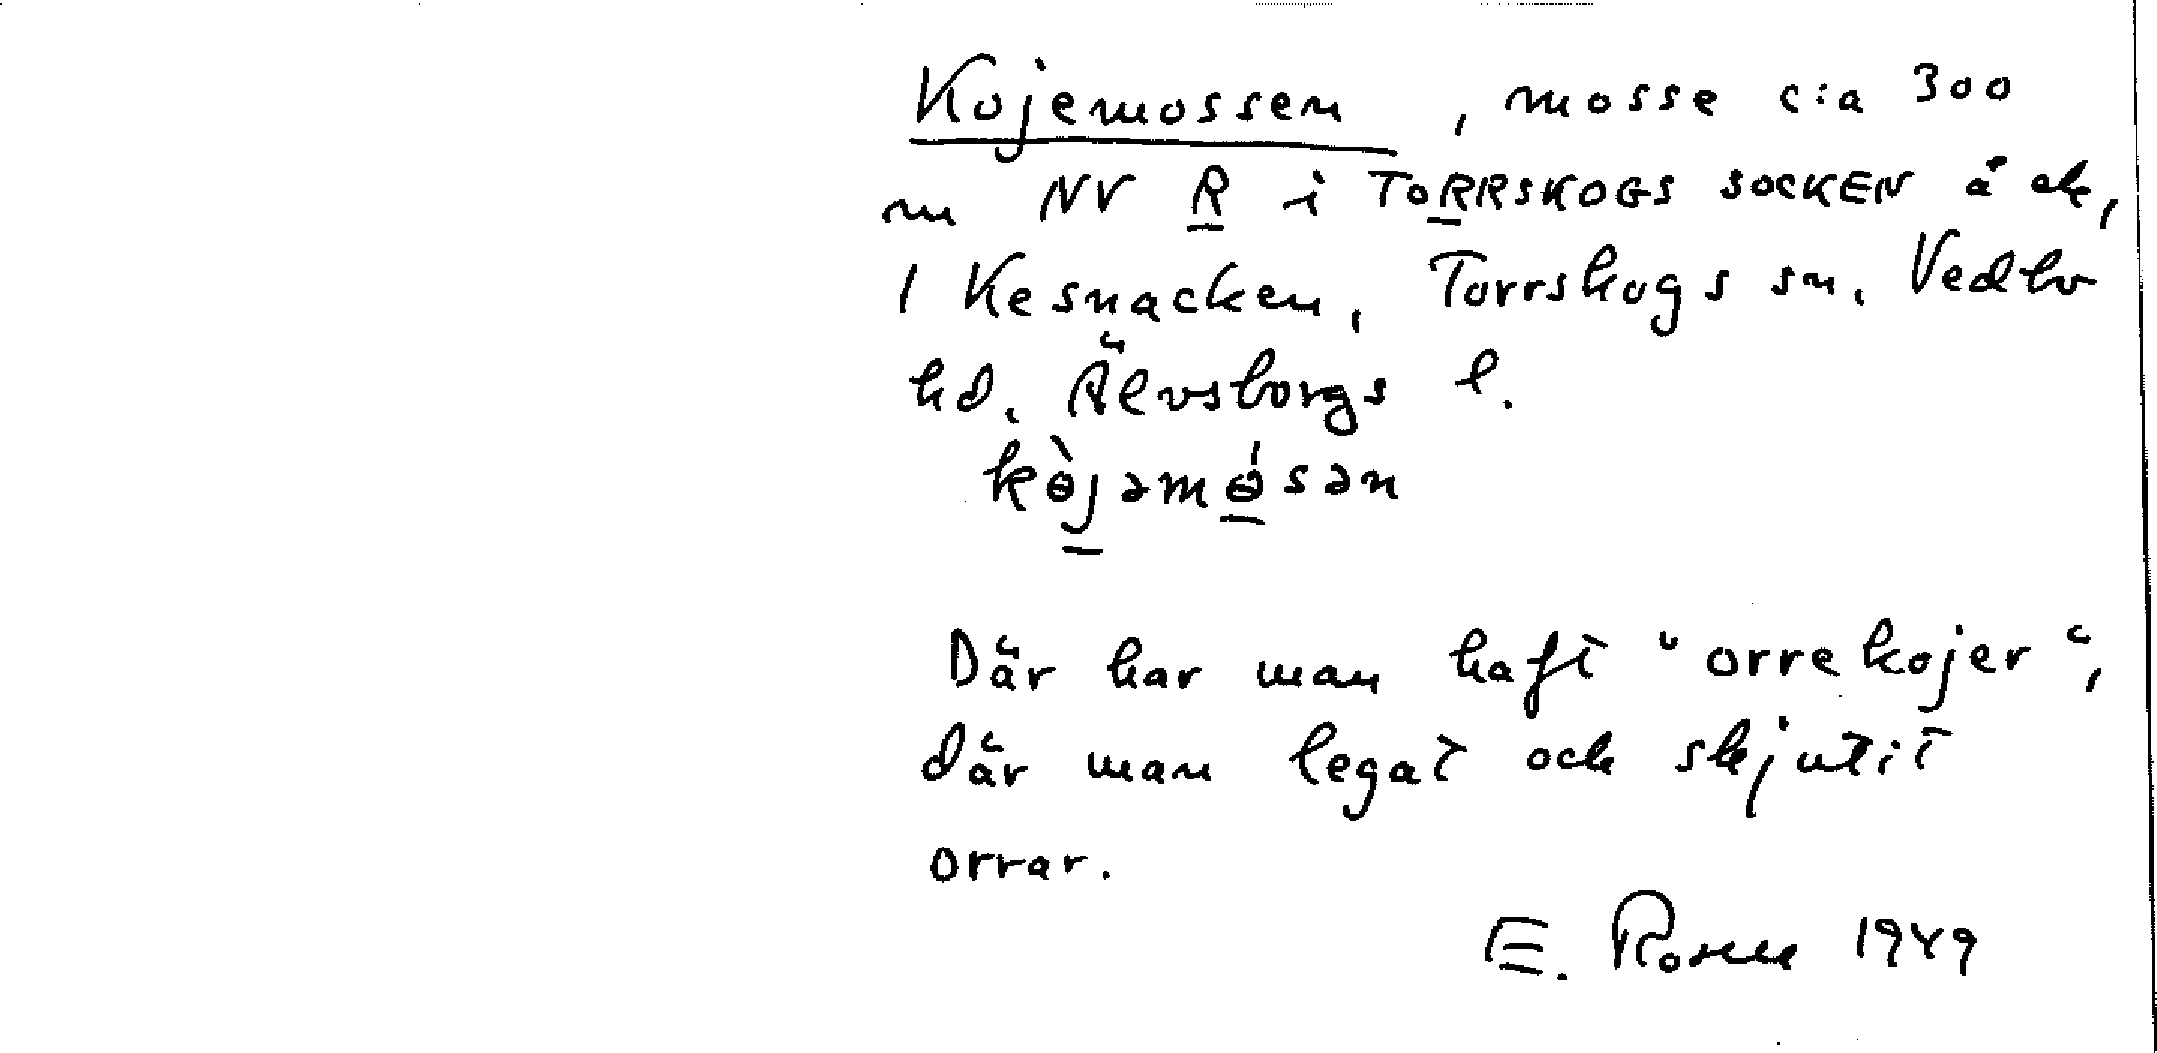 Kojemossen, mosse c:a 300
m NV R i TORRSKOGS SOCKEN å ek,
1 Kesnacken, Torrskogs sn. Vedbo
hd. Älvsborgs l.
kɵ̀jəmɵ́sən
Där har man haft "orrekojer",
där man legat och skjutit
orrar.
E. 1949